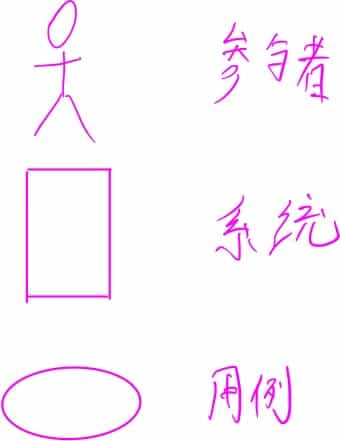 参与者
系统
用例